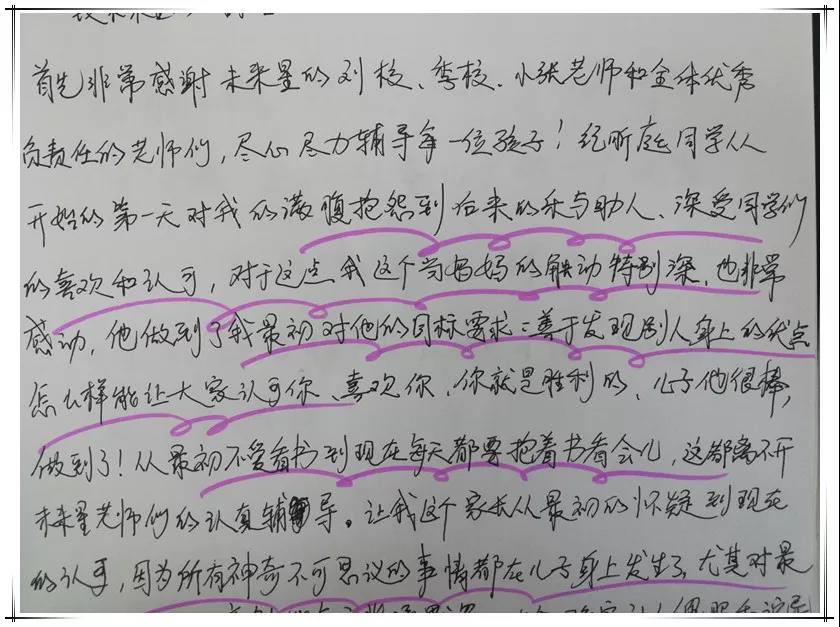 首先非常感谢未来星的刘校、季校、小张老师和全体优秀
负责任的老师们，尽心尽力辅导每一位孩子！纪昕庭同学从
开始的第一天对我的满腹抱怨到后来的乐与助人、深受同学们
的喜欢和认可，对于这点我这个当妈妈的触动特别深，也非常
感动，他做到了我最初对他的目标要求：善于发现别人身上的优点
怎么样能让大家认可你、喜欢你，你就是胜利的，儿子他很棒，
做到了！从最初不爱看书到现在每天都要抱着书看会儿，这都离不开
未来星老师们的认真辅导。让我这个家长从最初的怀疑到现在
的认可，因为所有神奇不可思议的事情都在儿子身上发生了，尤其对最